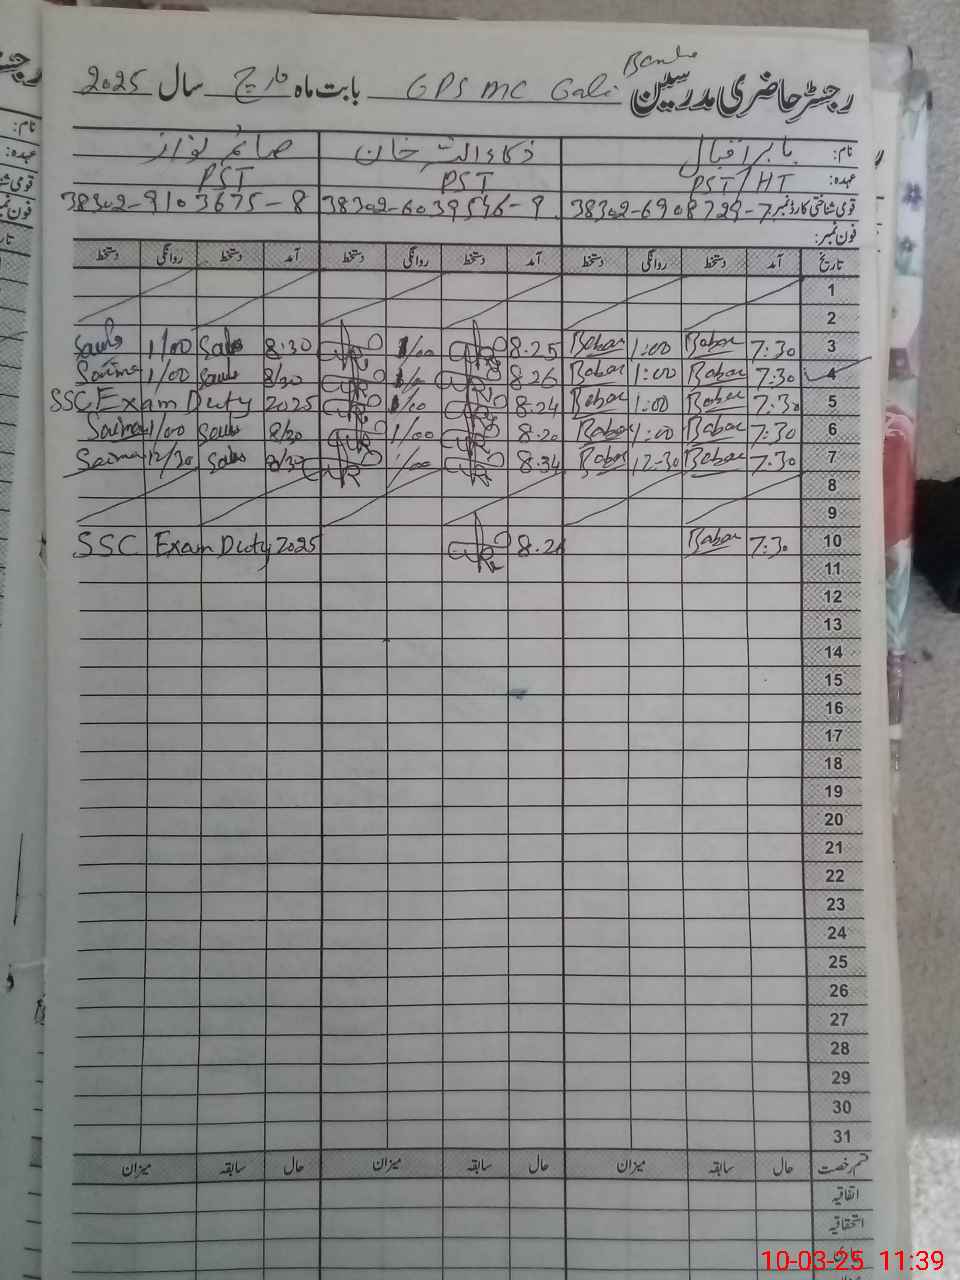 رجسٹر حاضری مدرسین GPS MC Gali بابت ماہ مارچ سال 2025
نام: بابر اقبال ذکاءاللہ خان صائمہ نواز
عہدہ: PST/HT PST PST
قومی شناختی کارڈ نمبر 38302-6908729-7 38302-6039546-9 38302-9103675-8
فون نمبر:
تاریخ آمد دستخط روانگی دستخط آمد دستخط روانگی دستخط آمد دستخط روانگی دستخط
1
2
3 7:30 Babar 1:00 Babar 8.25 1/00 8.30 1/00
4 7:30 Babar 1:00 Babar 8.26 8/30 1/00 Saima
5 7:30 Babar 1:00 Babar 8.24 SSC Exam Duty 2025
6 7:30 Babar 1:00 Babar 8.20 1/00 8/30 1/00 Saima
7 7:30 Babar 12-30 Babar 8.34 1/00 8/30 12/30 Saima
8
9
10 7:30 Babar SSC Exam Duty 2025
11
12
13
14
15
16
17
18
19
20
21
22
23
24
25
26
27
28
29
30
31
قسم رخصت حال سابقہ میزان حال سابقہ میزان حال سابقہ میزان
اتفاقیہ
استحقاقیہ
10-03-25 11:39